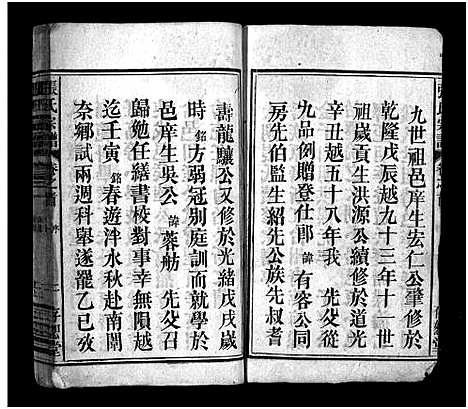 九世祖邑庠生宏仁公肇修於
乾隆戊辰越九十三年十一世
祖歲貢生洪源公續修於道光
辛丑越五十八年我 先父從
九品例贈登仕郎 諱有容公同
房先伯監生紹先公族先叔耆
壽龍驤公又修於光緒戊戌歲
時 銘方弱冠別庭訓而就學於
邑庠生吳公 諱蓉舫 先父召
歸勉任繕書校對事幸無隕越
迄壬寅 銘春遊泮水秋赴南闈
奈鄉試兩週科舉遂罷乙巳孜
張氏宗譜
卷之首